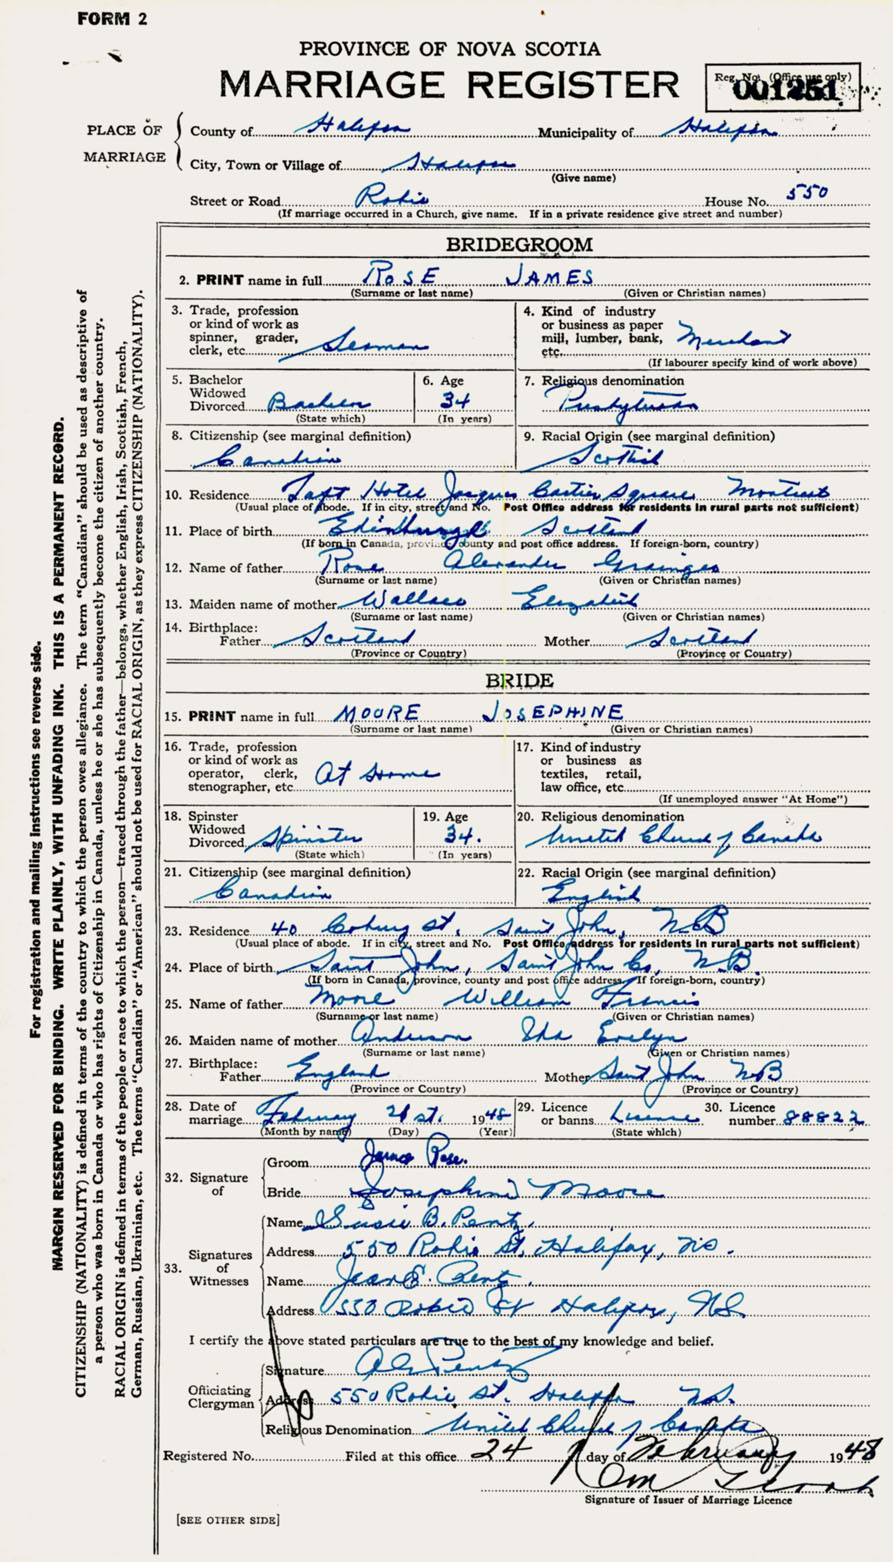 FORM 2
PROVINCE OF NOVA SCOTIA
MARRIAGE REGISTER
Reg. No. (Office use only)
001251
PLACE OF MARRIAGE
County of Halifax Municipality of Halifax
City, Town or Village of Halifax
(Give name)
Street or Road Robie House No. 550
(If marriage occurred in a Church, give name. If in a private residence give street and number)
BRIDEGROOM
2. PRINT name in full ROSE JAMES
(Surname or last name) (Given or Christian names)
3. Trade, profession
or kind of work as
spinner, grader,
clerk, etc. Seaman
4. Kind of industry
or business as paper
mill, lumber, bank,
etc. Merchant
(If labourer specify kind of work above)
5. Bachelor
Widowed
Divorced Bachelor
(State which)
6. Age
34
(In years)
7. Religious denomination
Presbyterian
8. Citizenship (see marginal definition)
Canadian
9. Racial Origin (see marginal definition)
Scottish
10. Residence Taft Hotel Jacques Cartier Square Montreal
(Usual place of abode. If in city, street and No. Post Office address for residents in rural parts not sufficient)
11. Place of birth Edinburgh Scotland
(If born in Canada, province, county and post office address. If foreign-born, country)
12. Name of father Rose Alexander Grainger
(Surname or last name) (Given or Christian names)
13. Maiden name of mother Wallace Elizabeth
(Surname or last name) (Given or Christian names)
14. Birthplace:
Father Scotland Mother Scotland
(Province or Country) (Province or Country)
BRIDE
15. PRINT name in full MOORE JOSEPHINE
(Surname or last name) (Given or Christian names)
16. Trade, profession
or kind of work as
operator, clerk,
stenographer, etc. At Home
17. Kind of industry
or business as
textiles, retail,
law office, etc.
(If unemployed answer "At Home")
18. Spinster
Widowed
Divorced Spinster
(State which)
19. Age
34.
(In years)
20. Religious denomination
United Church of Canada
21. Citizenship (see marginal definition)
Canadian
22. Racial Origin (see marginal definition)
English
23. Residence 40 Coburg St. Saint John, N.B
(Usual place of abode. If in city, street and No. Post Office address for residents in rural parts not sufficient)
24. Place of birth Saint John, Saint John Co. N.B.
(If born in Canada, province, county and post office address. If foreign-born, country)
25. Name of father Moore William Francis
(Surname or last name) (Given or Christian names)
26. Maiden name of mother Anderson Ida Evelyn
(Surname or last name) (Given or Christian names)
27. Birthplace:
Father England Mother Saint John NB
(Province or Country) (Province or Country)
28. Date of
marriage February 21st. 1948
(Month by name) (Day) (Year)
29. Licence
or banns Licence
(State which)
30. Licence
number 88822
32. Signature of
Groom James Rose.
Bride Josephine Moore
33. Signatures of Witnesses
Name Susie B. Pentz.
Address 550 Robie St, Halifax, NS.
Name Jean E. Pentz.
Address 550 Robie St Halifax, NS
I certify the above stated particulars are true to the best of my knowledge and belief.
Officiating Clergyman
Signature Pentz
Address 550 Robie St. Halifax N.S.
Religious Denomination United Church of Canada
Registered No. Filed at this office 24 day of February 1948
Signature of Issuer of Marriage Licence
[SEE OTHER SIDE]
For registration and mailing instructions see reverse side.
MARGIN RESERVED FOR BINDING. WRITE PLAINLY, WITH UNFADING INK. THIS IS A PERMANENT RECORD.
CITIZENSHIP (NATIONALITY) is defined in terms of the country to which the person owes allegiance. The term "Canadian" should be used as descriptive of
a person who was born in Canada or who has rights of Citizenship in Canada, unless he or she has subsequently become the citizen of another country.
RACIAL ORIGIN is defined in terms of the people or race to which the person—traced through the father—belongs, whether English, Irish, Scottish, French,
German, Russian, Ukrainian, etc. The terms "Canadian" or "American" should not be used for RACIAL ORIGIN, as they express CITIZENSHIP (NATIONALITY).